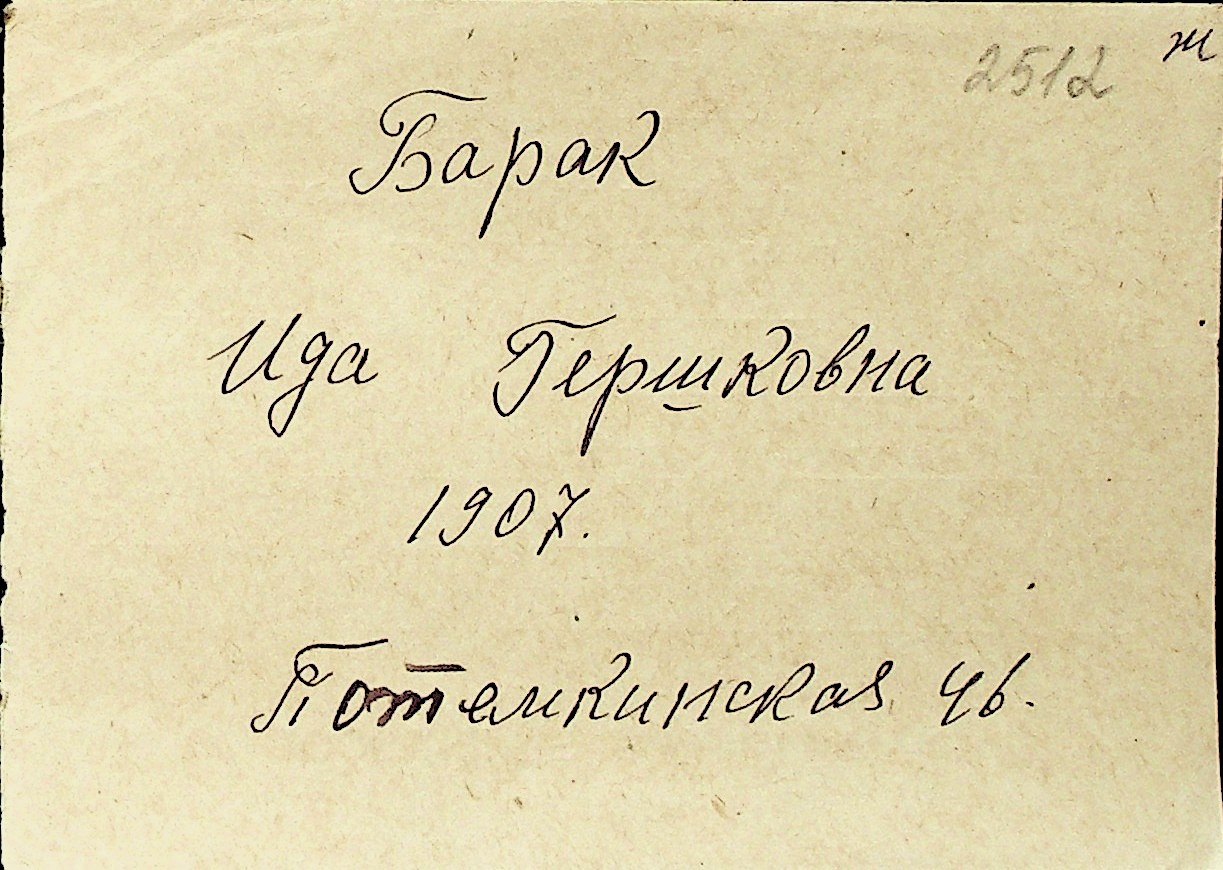 2512 ж
Барак
Ида Гершковна
1907.
Потемкинская 46.